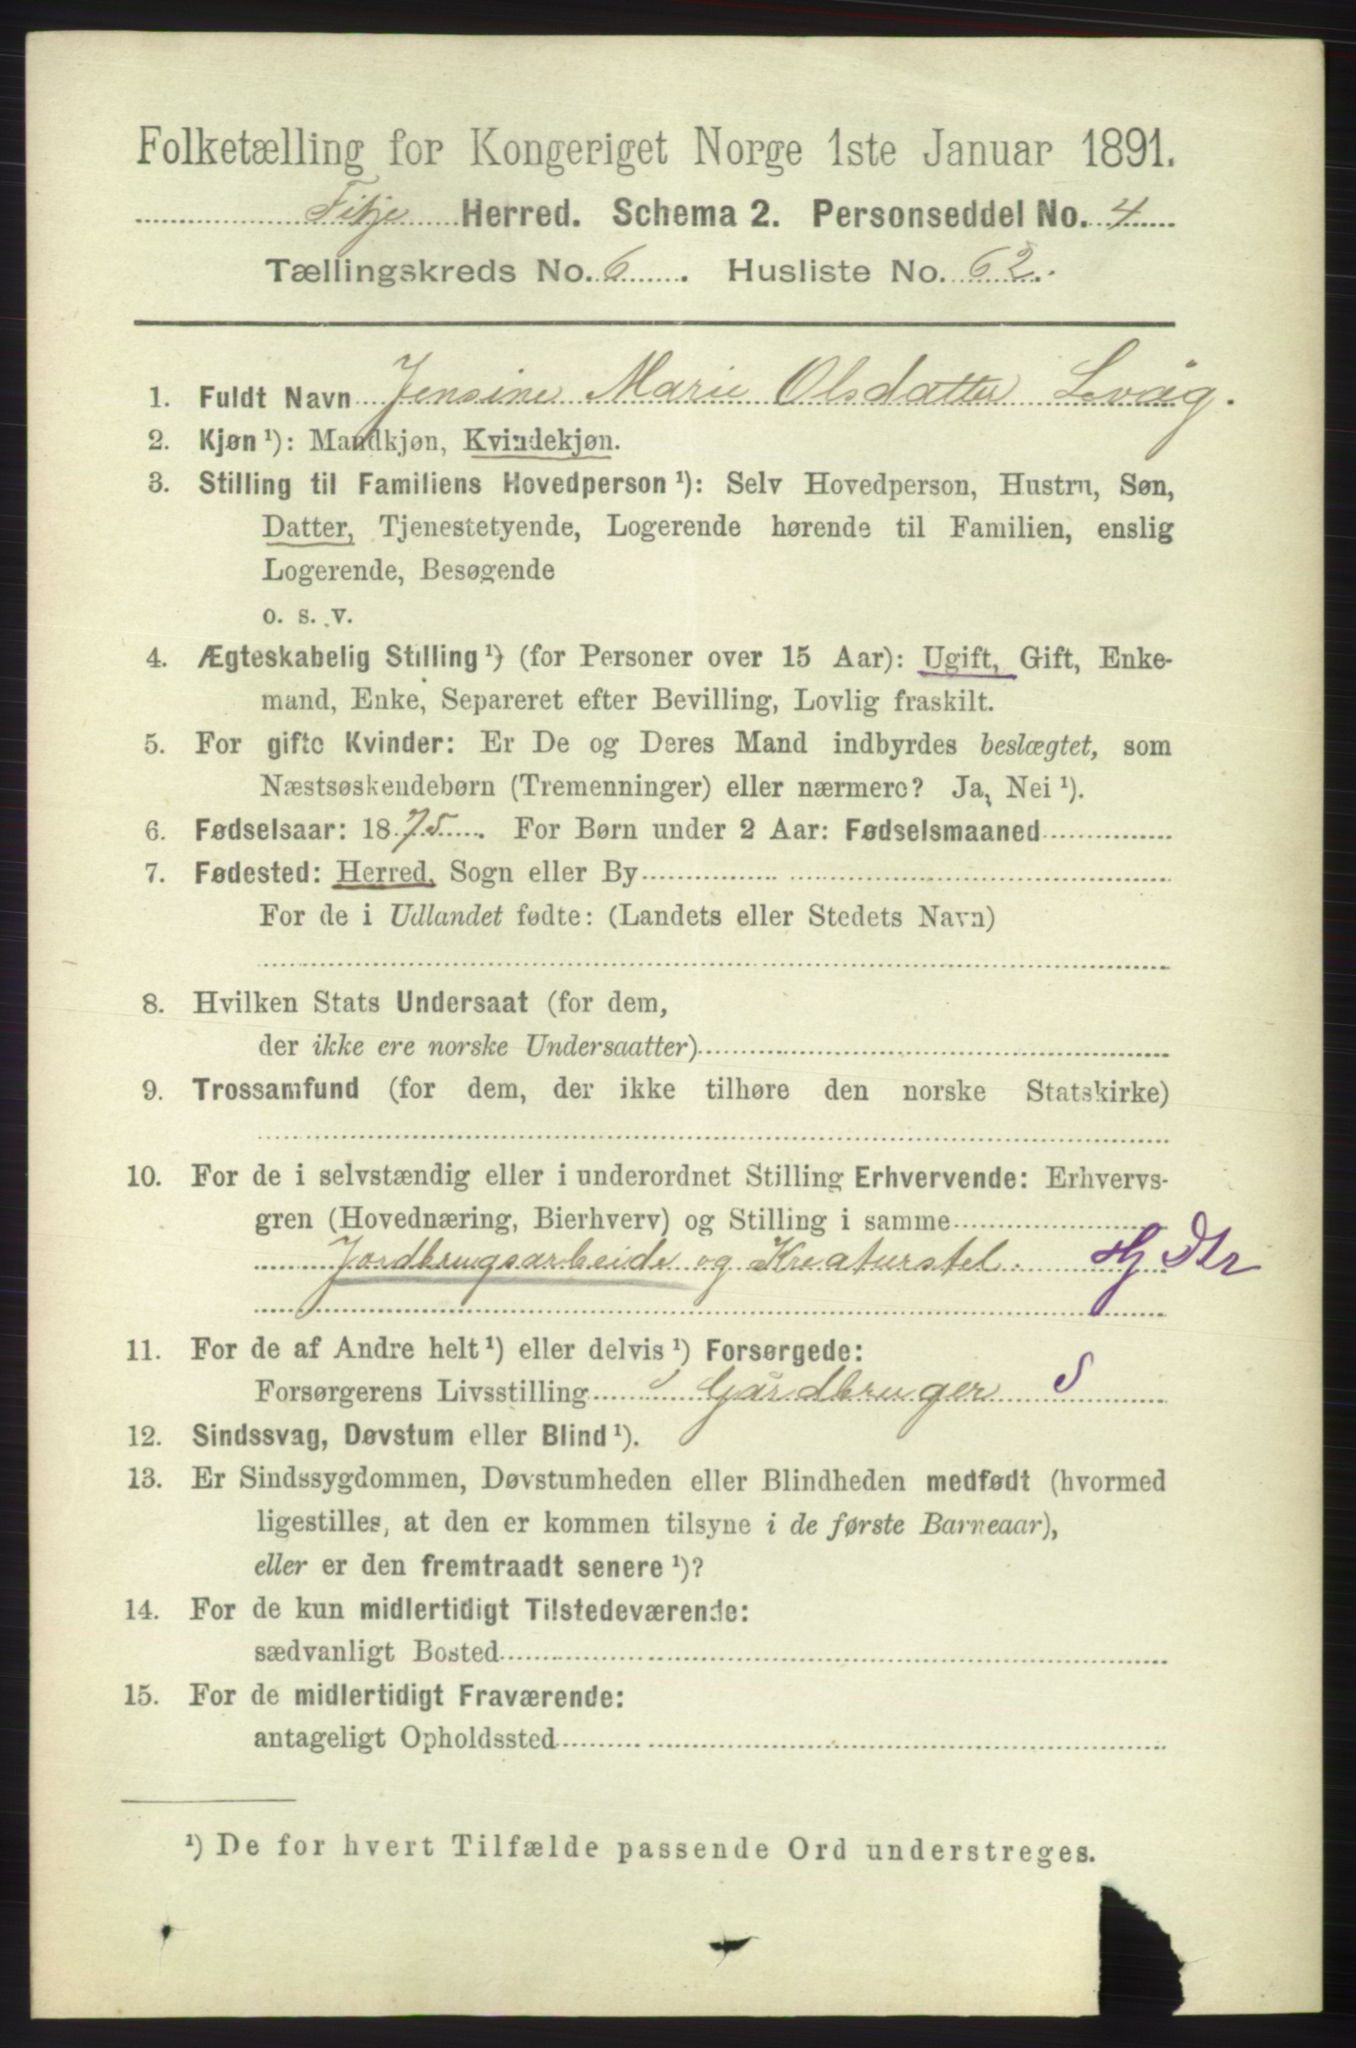 Folketælling for Kongeriget Norge 1ste Januar 1891.
Fitje Herred. Schema 2. Personseddel No. 4
Tællingskreds No. 6. Husliste No. 62.
1. Fuldt Navn Jensine Marie Olsdatter Lvåg.
2. Kjøn¹): Mandkjøn, Kvindekjøn.
3. Stilling til Familiens Hovedperson¹): Selv Hovedperson, Hustru, Søn,
Datter, Tjenestetyende, Logerende hørende til Familien, enslig
Logerende, Besøgende
o. s. v.
4. Ægteskabelig Stilling¹) (for Personer over 15 Aar): Ugift, Gift, Enke-
mand, Enke, Separeret efter Bevilling, Lovlig fraskilt.
5. For gifte Kvinder: Er De og Deres Mand indbyrdes beslægtet, som
Næstsøskendebørn (Tremenninger) eller nærmere? Ja, Nei¹).
6. Fødselsaar: 1875. For Børn under 2 Aar: Fødselsmaaned
7. Fødested: Herred, Sogn eller By
For de i Udlandet fødte: (Landets eller Stedets Navn)
8. Hvilken Stats Undersaat (for dem,
der ikke ere norske Undersaatter)
9. Trossamfund (for dem, der ikke tilhøre den norske Statskirke)
10. For de i selvstændig eller i underordnet Stilling Erhvervende: Erhvervs-
gren (Hovednæring, Bierhverv) og Stilling i samme
Jordbrugsarbeide og Kreaturstel. Hj Dtr
11. For de af Andre helt¹) eller delvis¹) Forsørgede:
Forsørgerens Livsstilling Gårdbruger S
12. Sindssvag, Døvstum eller Blind¹).
13. Er Sindssygdommen, Døvstumheden eller Blindheden medfødt (hvormed
ligestilles, at den er kommen tilsyne i de første Barneaar),
eller er den fremtraadt senere¹)?
14. For de kun midlertidigt Tilstedeværende:
sædvanligt Bosted
15. For de midlertidigt Fraværende:
antageligt Opholdssted
¹) De for hvert Tilfælde passende Ord understreges.